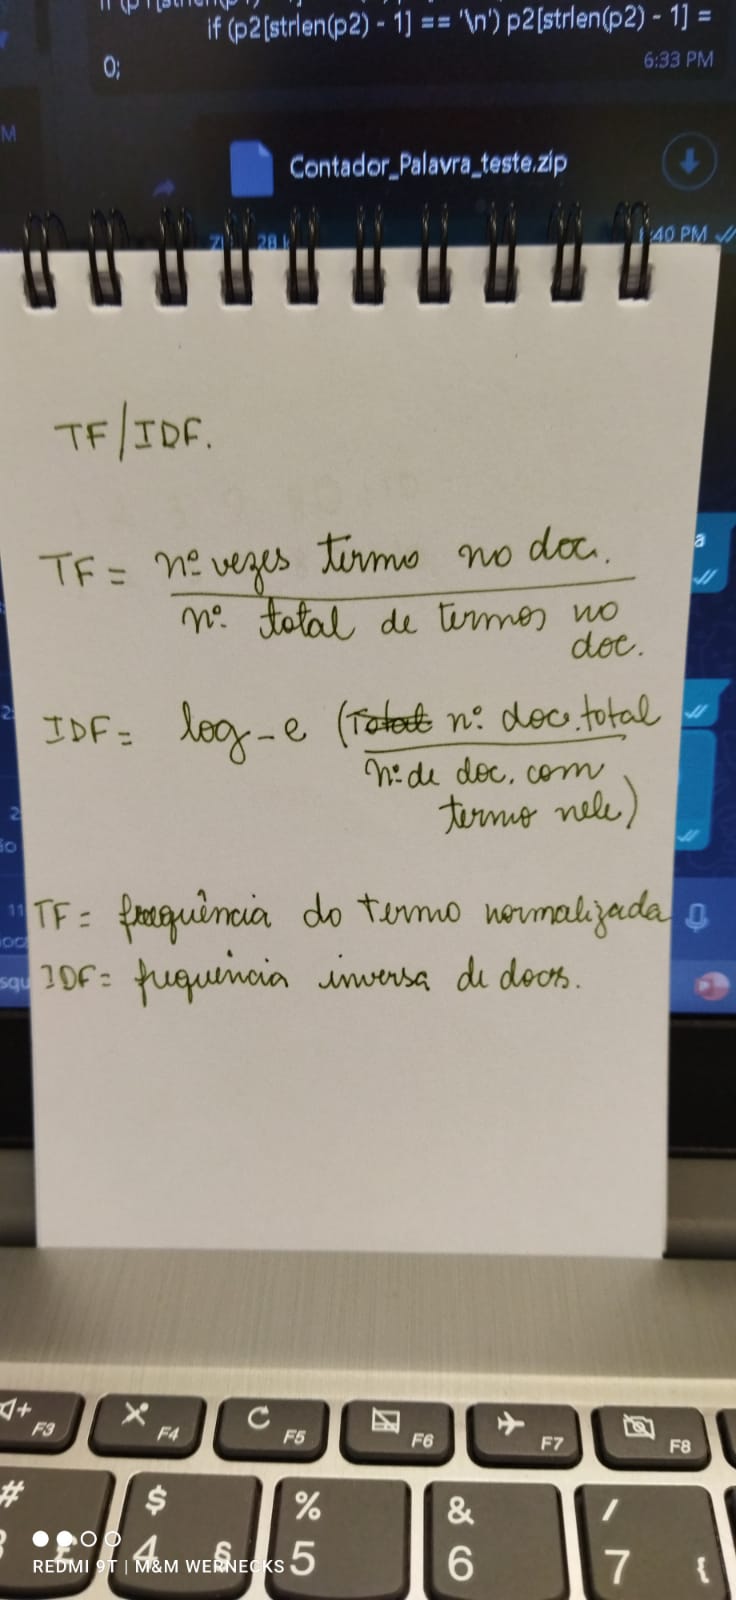 if (p2[strlen(p2) - 1] == '\n') p2[strlen(p2) - 1] =
0;
6:33 PM
Contador_Palavra_teste.zip
28
40 PM
TF/IDF.
TF = nº vezes termo no doc.
nº. total de termos no
doc.
IDF = log-e (Total nº. doc. total
nº de doc. com
termo nele)
TF = frequência do termo normalizada
IDF = frequência inversa de docs.
F3
F4
F5
F6
F7
F8
#
$
%
&
/
4
§
5
6
7
{
REDMI 9T | M&M WERNECKS